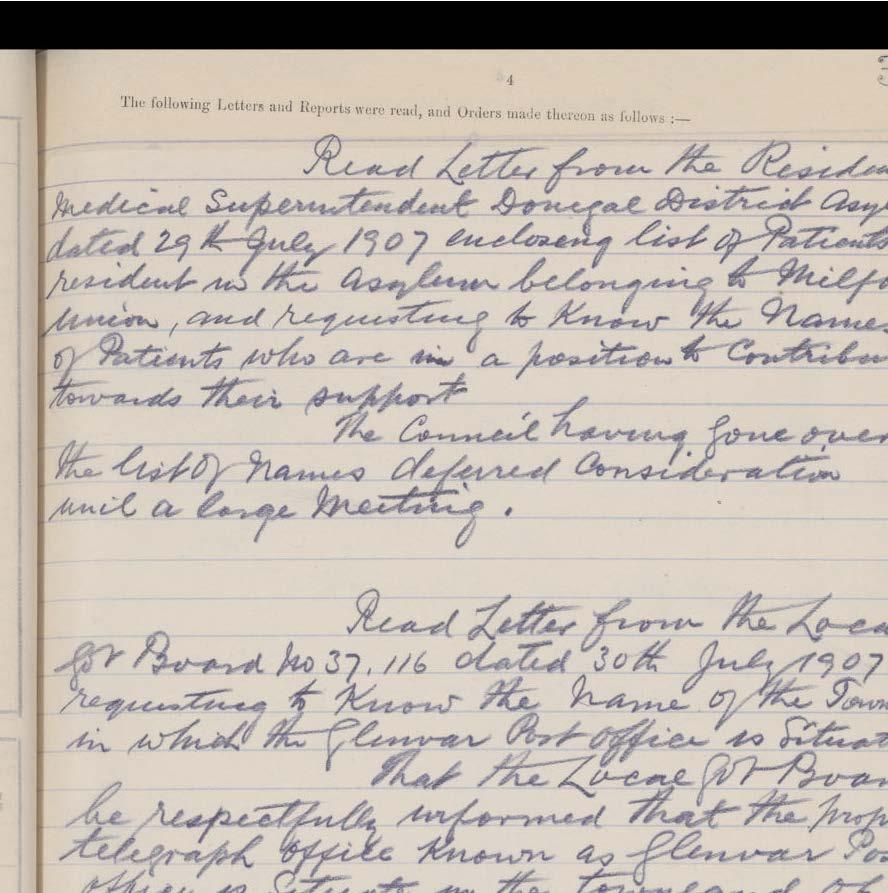 4
The following Letters and Reports were read, and Orders made thereon as follows :—
Read Letter from the Residen
Medical Superintendent Donegal District Asy
dated 29th July 1907 enclosing list of Patients
resident in the Asylum belonging to Milfo
Union, and requesting to Know the Names
of Patients who are in a position to Contribu
towards their support
The Council having gone over
the list of Names deferred Consideration
unil a large Meeting.
Read Letter from the Loca
Govt Board No 37,116 dated 30th July 1907
requesting to Know the Name of the Town
in which the Glenvar Post office is Situat
That the Local Govt Boar
be respectfully informed that the prop
telegraph office Known as Glenvar Pos
office is Situate in the townland of